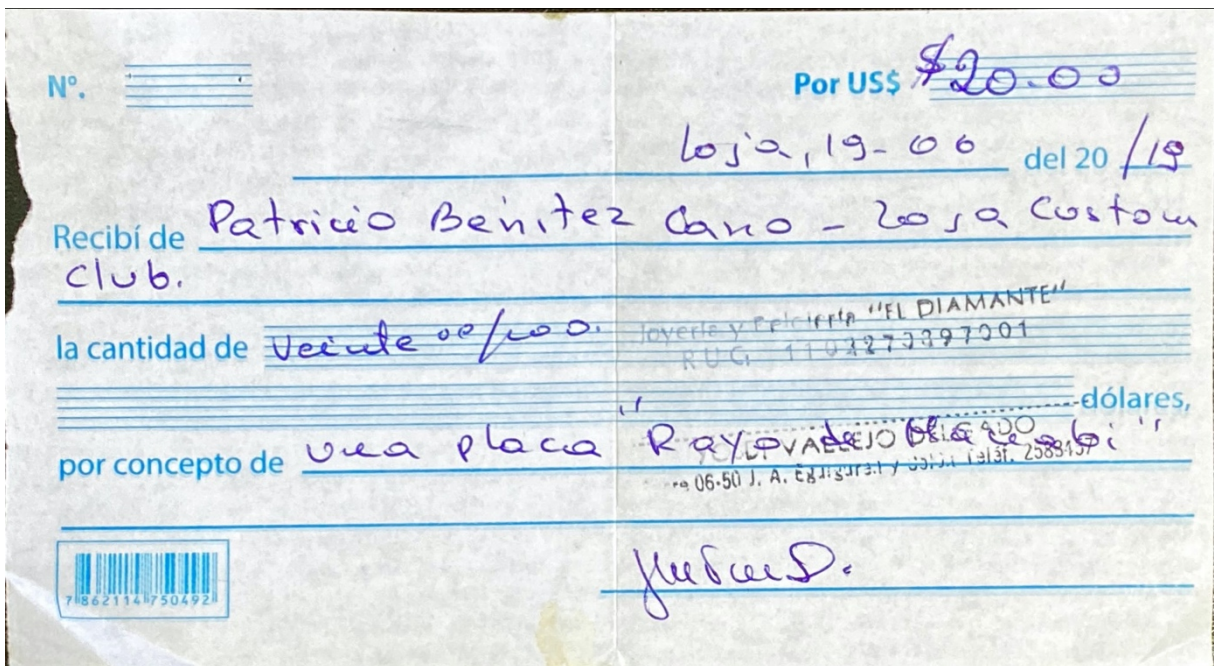 Nº.
Por US$ $20.00
Loja, 19-06 del 20 /19
Recibí de Patricio Benitez Cano - Loja Custom
Club.
la cantidad de Veinte 00/100.
Joyería y "EL DIAMANTE"
RUC. 1103273397001
dólares,
por concepto de una placa "Rayo de
VALLEJO DELGADO
06-50 J. A. Eguiguren y Telef.
7 862114 750492